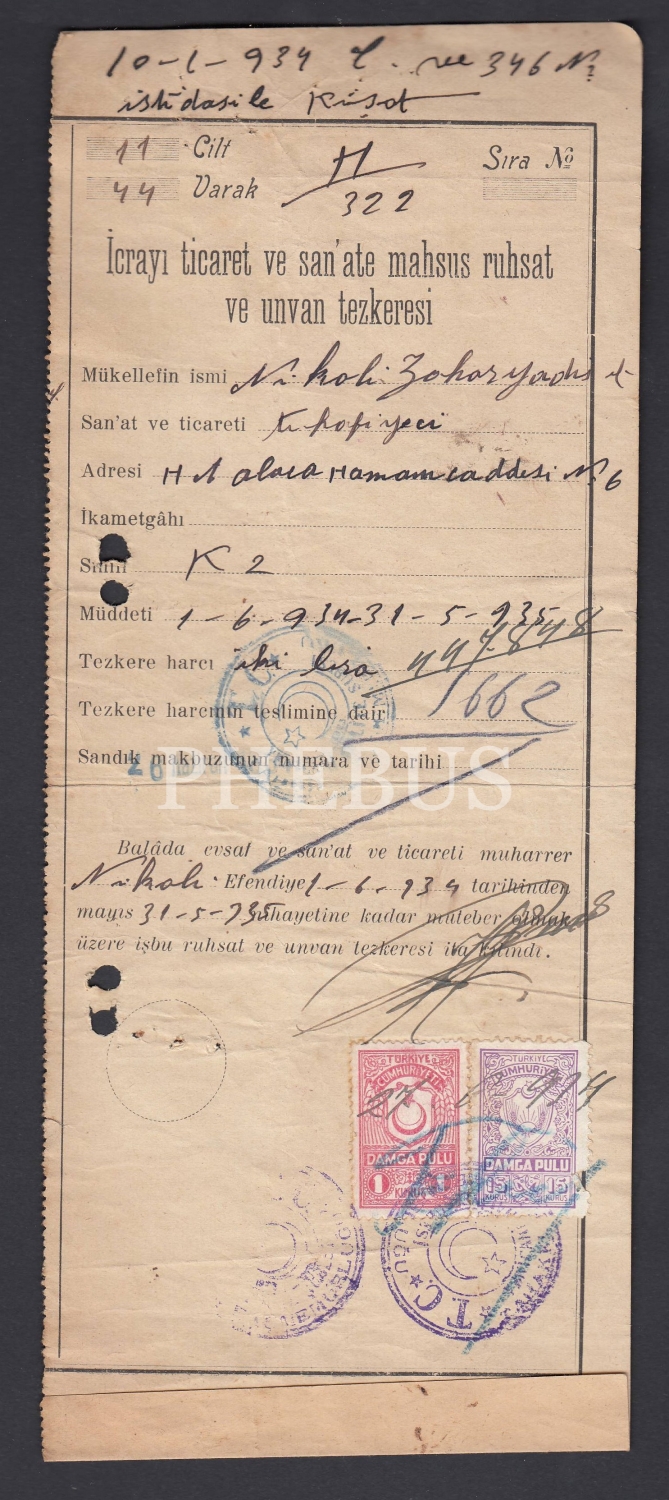 10-1-934 T. ve 346 №
istidasile Küşat
11 Cilt
44 Varak
H
322
Sıra №
İcrayı ticaret ve san'ate mahsus ruhsat
ve unvan tezkeresi
Mükellefin ismi Nikoli Zoharyadis
San'at ve ticareti
Adresi H A alaca Hamam caddesi № 6
İkametgâhı
Sınıfı K 2
Müddeti 1-6-934-31-5-935
Tezkere harcı iki lira 447848
Tezkere harcının teslimine dair 662
Sandık makbuzunun numara ve tarihi
PHEBUS
Balâda evsaf ve san'at ve ticareti muharrer
Nikoli Efendiye 1-6-934 tarihinden
mayıs 31-5-935 nihayetine kadar muteber olmak
üzere işbu ruhsat ve unvan tezkeresi ita kılındı.
TÜRKİYE CUMHURİYETİ
DAMGA PULU
1 KURUŞ 1
TÜRKİYE CUMHURİYETİ
DAMGA PULU
15 KURUŞ 15 KURUŞ
T.C.